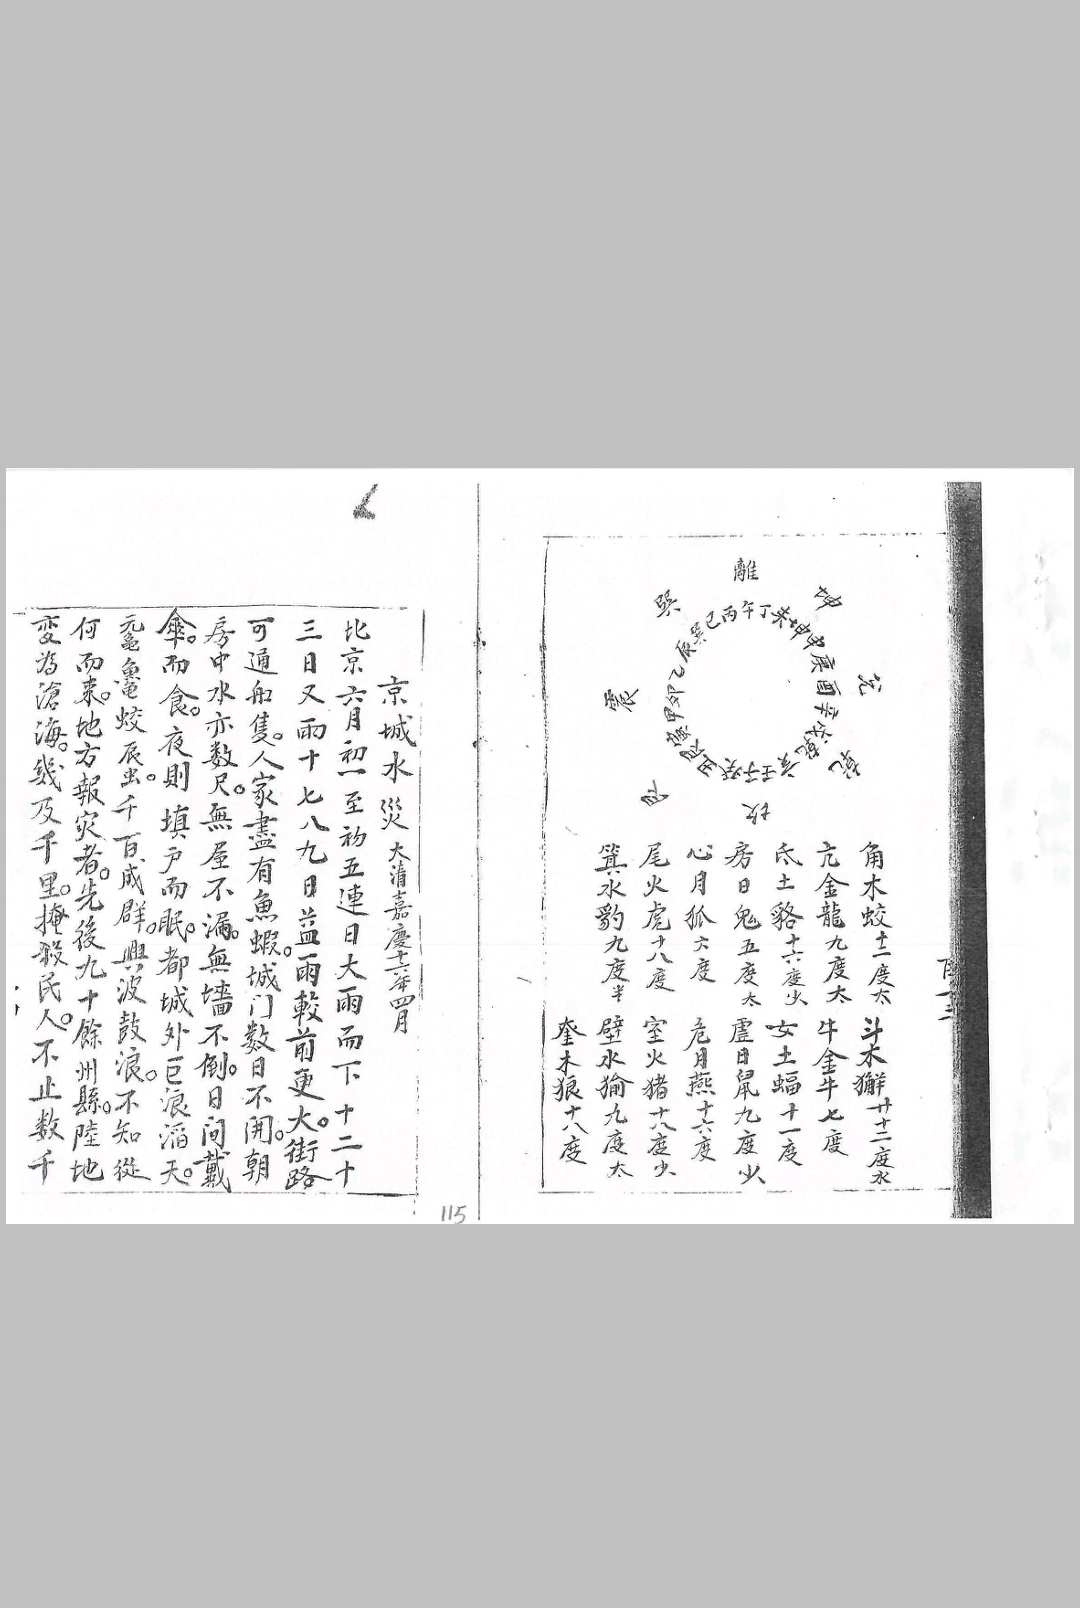 離
坤
兌
乾
坎
艮
震
巽
巳丙午丁未坤申庚酉辛戌乾亥壬子癸丑艮寅甲卯乙辰巽
角木蛟十二度太
亢金龍九度太
氐土貉十六度少
房日兔五度太
心月狐六度
尾火虎十八度
箕水豹九度半
斗木獬廿二度水
牛金牛七度
女土蝠十一度
虛日鼠九度少
危月燕十六度
室火猪十八度少
壁水㺄九度太
奎木狼十八度
京城水災大清嘉慶十六年四月
北京六月初一至初五連日大雨而下十二十
三日又雨十七八九日益雨較前更大。街路
可通船隻。人家盡有魚蝦。城门数日不開。朝
房中水亦数尺。無屋不漏。無墻不倒。日间戴
傘。而食。夜則填户而眠。都城外巨浪滔天。
元黿魚鼋蛟辰虫。千百成群。興波鼓浪。不知從
何而来。地方報灾者。先後九十餘州縣。陸地
变為滄海。幾及千里。掩殺民人。不止数千
115